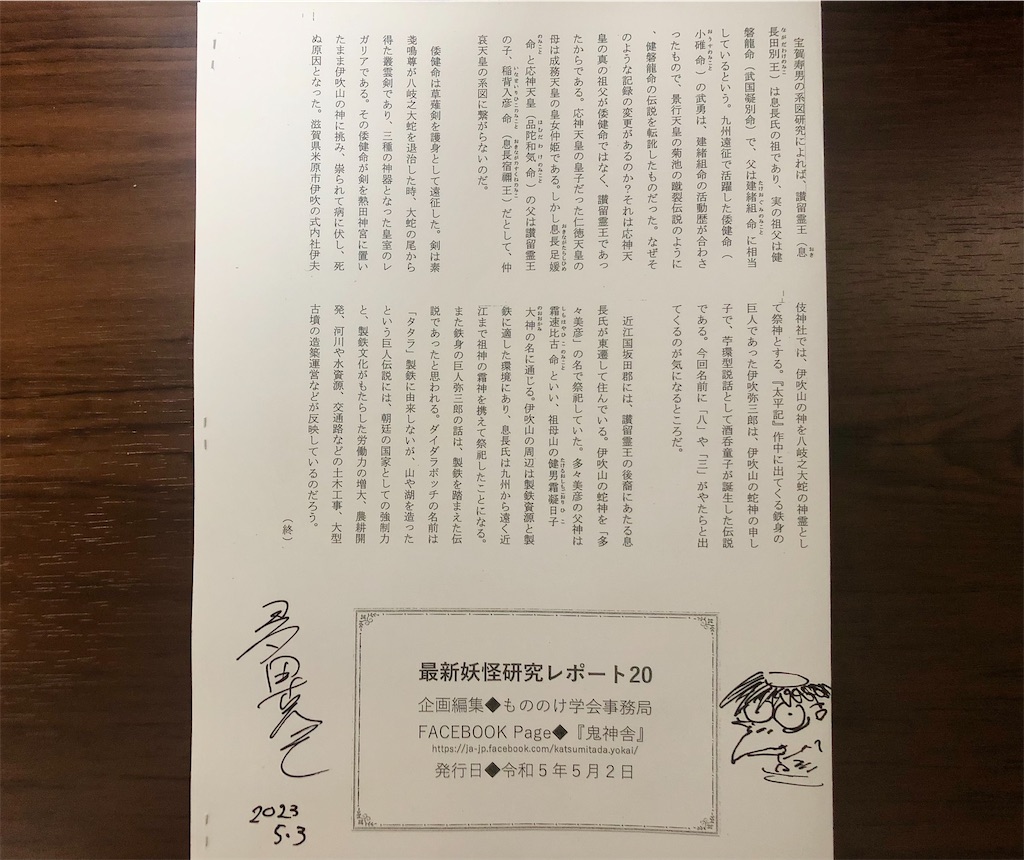 宝賀寿男の系図研究によれば、讃留霊王（息
長田別王）は息長氏の祖であり、実の祖父は健
磐龍命（武国凝別命）で、父は建緒組命に相当
しているという。九州遠征で活躍した倭健命（
小碓命）の武勇は、建緒組命の活動歴が合わさ
ったもので、景行天皇の菊池の蹴裂伝説のように
、健磐龍命の伝説を転訛したものだった。なぜそ
のような記録の変更があるのか？それは応神天
皇の真の祖父が倭健命ではなく、讃留霊王であっ
たからである。応神天皇の皇子だった仁徳天皇の
母は成務天皇の皇女仲姫である。しかし息長足媛
命と応神天皇（品陀和気命）の父は讃留霊王
の子、稲背入彦命（息長宿禰王）だとして、仲
哀天皇の系図に繋がらないのだ。
倭健命は草薙剣を護身として遠征した。剣は素
戔嗚尊が八岐之大蛇を退治した時、大蛇の尾から
得た叢雲剣であり、三種の神器となった皇室のレ
ガリアである。その倭健命が剣を熱田神宮に置い
たまま伊吹山の神に挑み、祟られて病に伏し、死
ぬ原因となった。滋賀県米原市伊吹の式内社伊夫
伎神社では、伊吹山の神を八岐之大蛇の神霊とし
て祭神とする。『太平記』作中に出てくる鉄身の
巨人であった伊吹弥三郎は、伊吹山の蛇神の申し
子で、苧環型説話として酒呑童子が誕生した伝説
である。今回名前に「八」や「三」がやたらと出
てくるのが気になるところだ。
近江国坂田郡には、讃留霊王の後裔にあたる息
長氏が東遷して住んでいる。伊吹山の蛇神を「多
々美彦」の名で祭祀していた。多々美彦の父神は
霜速比古命といい、祖母山の健男霜凝日子
大神の名に通じる。伊吹山の周辺は製鉄資源と製
鉄に適した環境にあり、息長氏は九州から遠く近
江まで祖神の霜神を携えて祭祀したことになる。
また鉄身の巨人弥三郎の話は、製鉄を踏まえた伝
説であったと思われる。ダイダラボッチの名前は
「タタラ」製鉄に由来しないが、山や湖を造った
という巨人伝説には、朝廷の国家としての強制力
と、製鉄文化がもたらした労働力の増大、農耕開
発、河川や水資源、交通路などの土木工事、大型
古墳の造築運営などが反映しているのだろう。
（終）
最新妖怪研究レポート20
企画編集◆もののけ学会事務局
FACEBOOK Page◆『鬼神舎』
https://ja-jp.facebook.com/katsumitada.yokai/
発行日◆令和5年5月2日
多田克己
2023
5.3